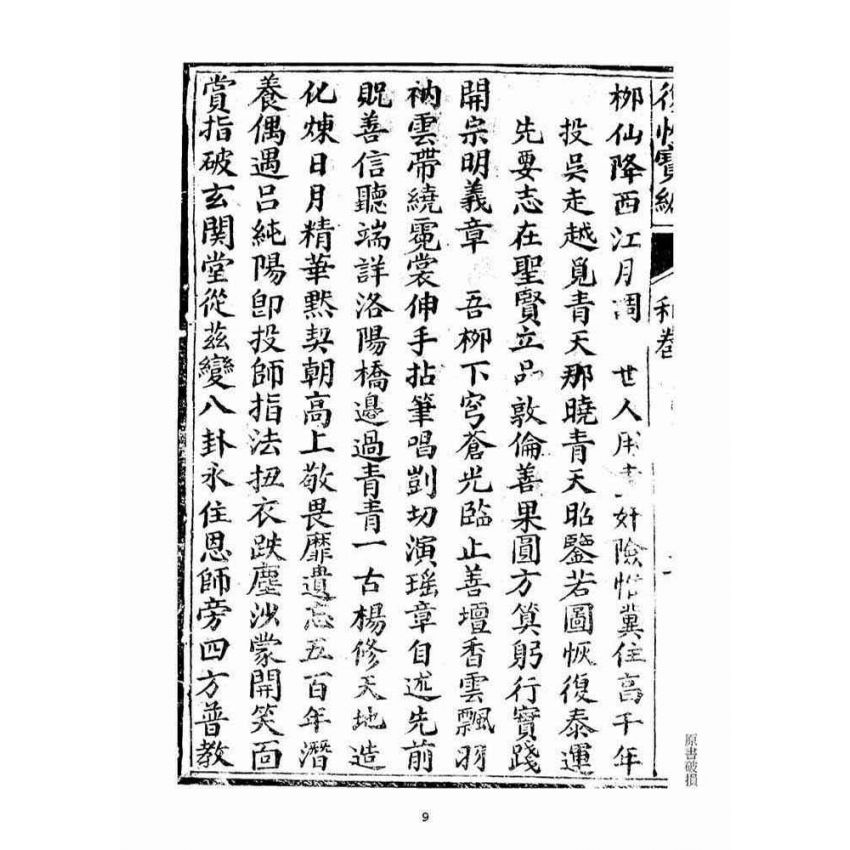 柳仙降西江月調　世人用　奸險　冀住高千年
投吳走越覓青天那曉青天昭鑒若圖恢復泰運
先要志在聖賢立品敦倫善果圓方算躬行實踐
開宗明義章　吾柳下穹蒼光臨止善壇香雲飄羽
衲雲帶繞霓裳伸手拈筆唱剴切演瑤章自述先前
貺善信聽端詳洛陽橋邊過青青一古楊修天地造
化煉日月精華默契朝高上敬畏靡遺忘五百年潛
養偶遇呂純陽卽投師指法扭衣跌塵沙蒙開笑面
賞指破玄関堂從茲變八卦永住恩師旁四方普教
原書破損
9